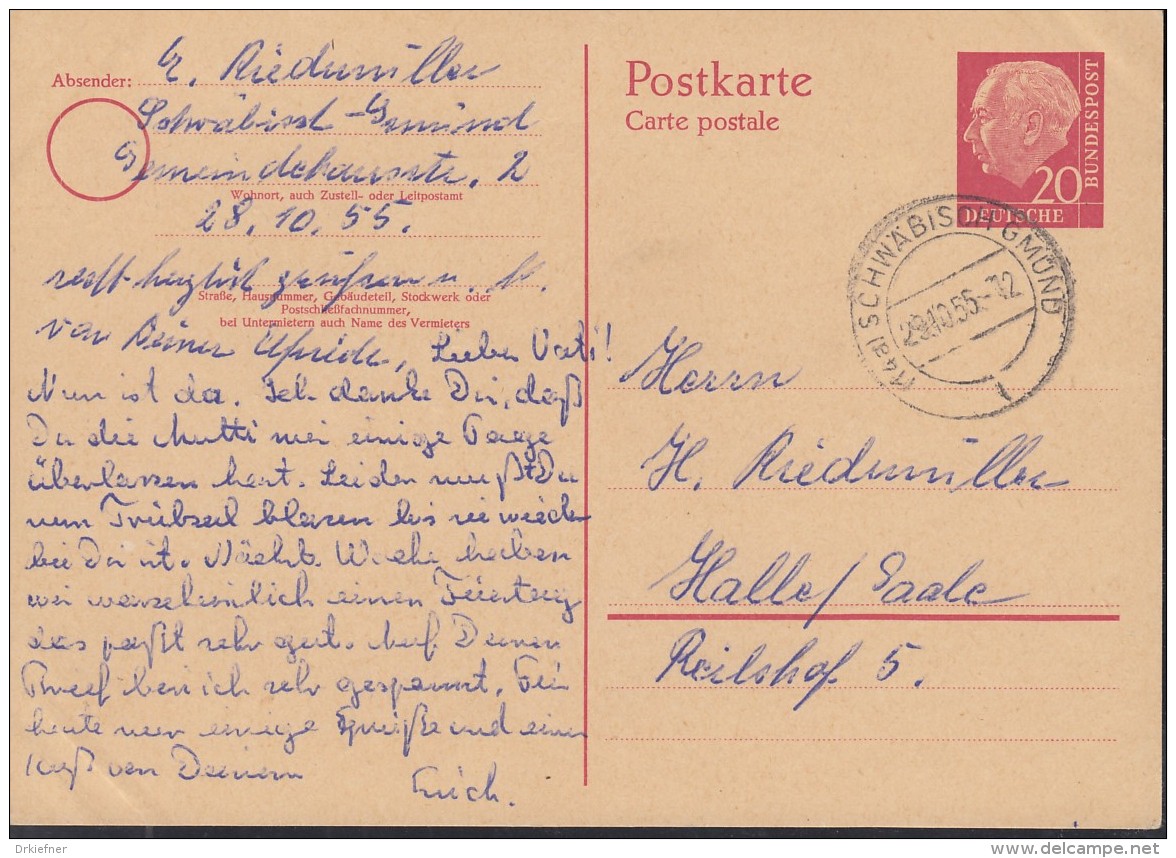 Absender: E. Riedmüller
Schwäbisch-Gmünd
Gemeindehausstr. 2
Wohnort, auch Zustell- oder Leitpostamt
28.10.55.
Straße, Hausnummer, Gebäudeteil, Stockwerk oder
Postschließfachnummer,
bei Untermietern auch Name des Vermieters
von Deiner Lieber Vati!
Nun ist da. Ich danke Dir, daß
Du die Mutti einige Tage
überlassen hast. Leider mußt Du
nun Trübsal blasen bis sie wieder
bei Dir ist. Nächst. Woche haben
wir warscheinlich einen Feiertag
das paßt sehr gut. Auf Deinen
Brief bin ich sehr gespannt. Für
heute nur einige Grüße und einen
Kuß von Deinem
Erich.
Postkarte
Carte postale
20
DEUTSCHE
BUNDESPOST
(14a) SCHWÄBISCH GMÜND
29.10.55.-12
1
Herrn
H. Riedmüller
Halle/Saale
Reilshof 5.
Drkiefner
delcampe.net